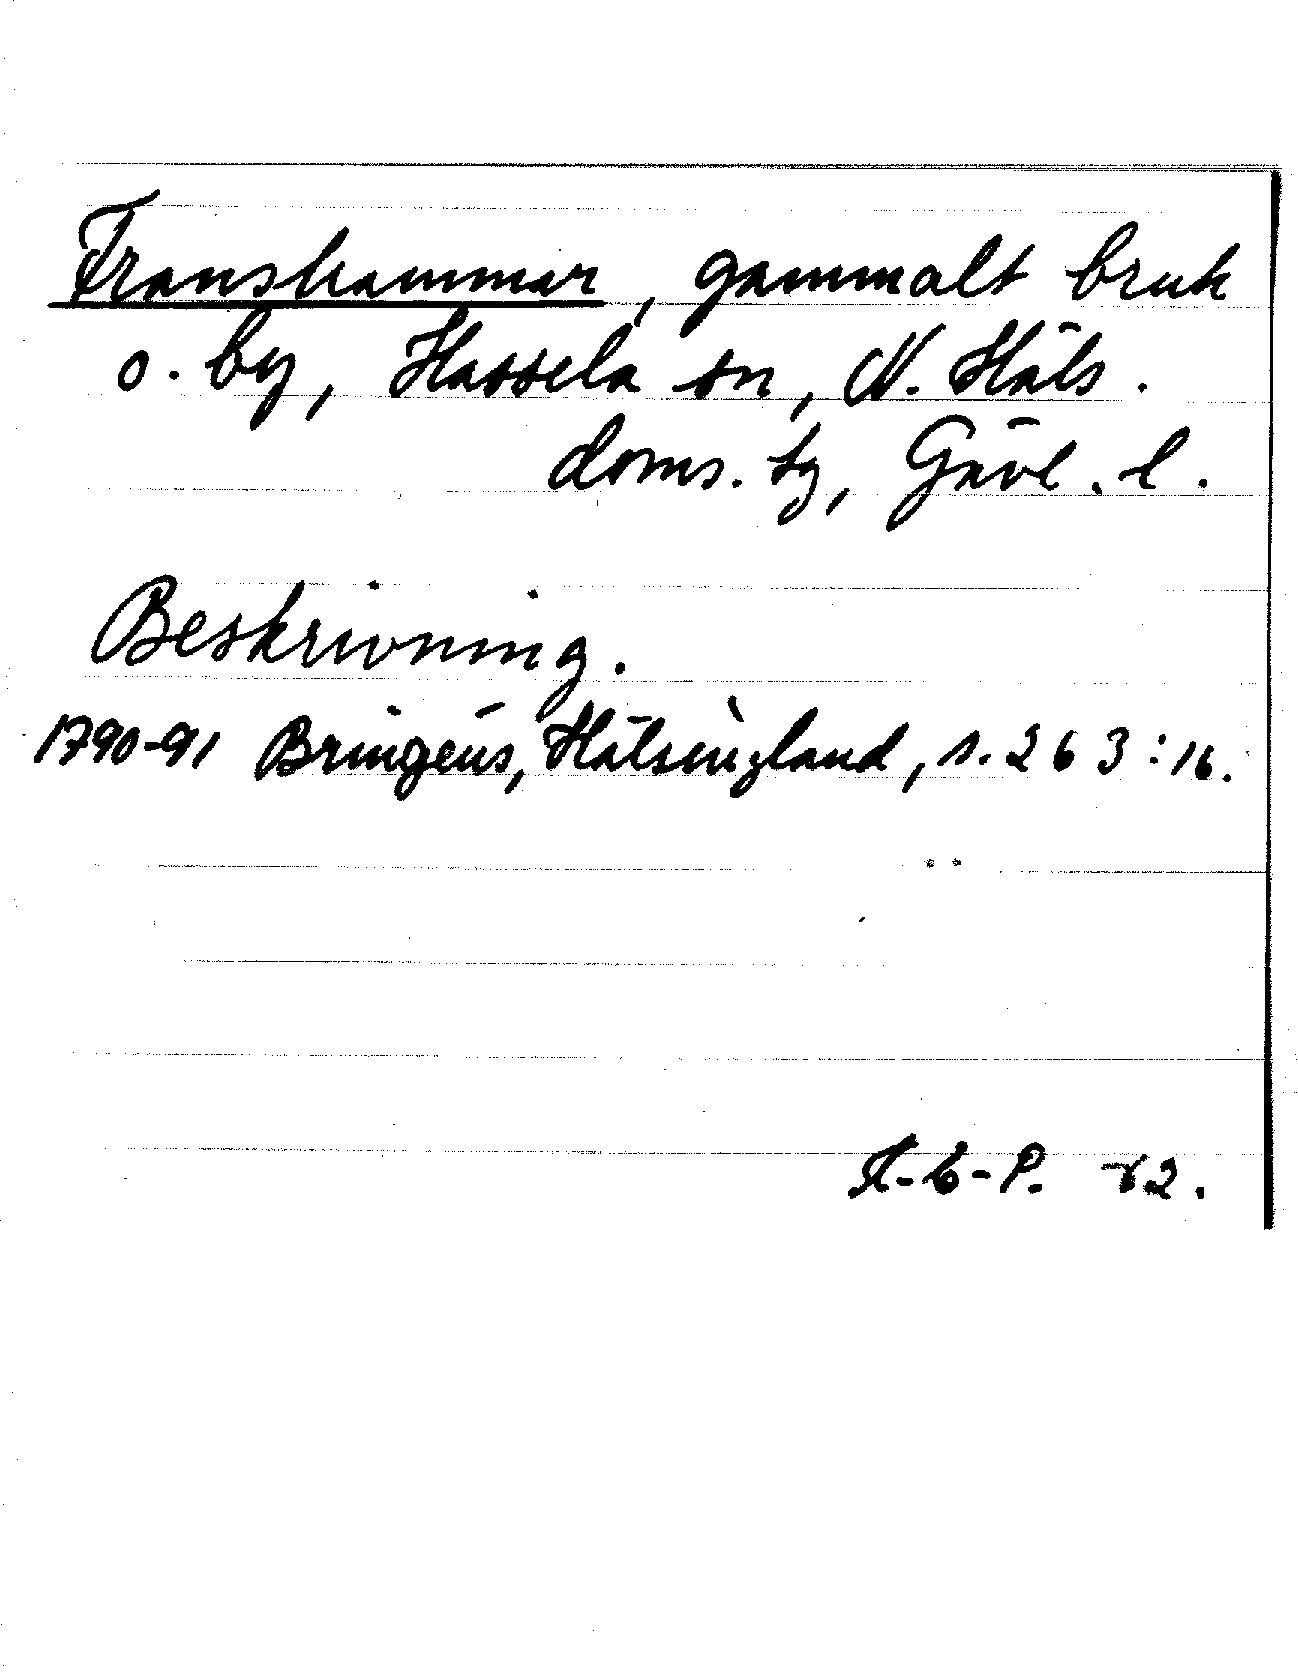 Franshammar, gammalt bruk
o. by, Hassela sn, N. Häls.
doms. tg, Gävl. l.
Beskrivning.
1790-91 Bringéus, Hälsingland, s. 263:16.